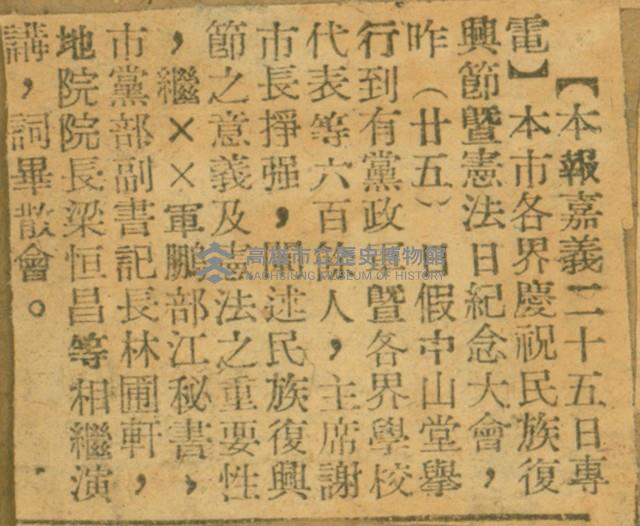 【本報嘉義二十五日專
電】本市各界慶祝民族復
興節暨憲法日紀念大會,
昨(廿五)日假中山堂舉
行到有黨政 暨各界學校
代表等六百 人,主席謝
市長掙强,闡述民族復興
節之意義及憲法之重要性
,繼××軍鵬部江秘書,
市黨部副書記長林圃軒,
地院院長梁恒昌等相繼演
講,詞畢散會。
高雄市立歷史博物館
KAOHSIUNG MUSEUM OF HISTORY